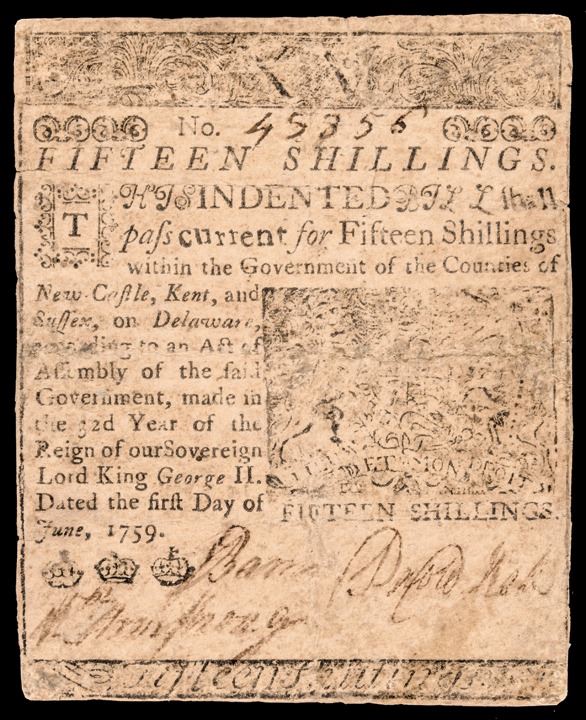 No. 45355
FIFTEEN SHILLINGS.
THIS INDENTED BILL ſhall
paſs current for Fifteen Shillings
within the Government of the Counties of
New-Caſtle, Kent, and
Suſſex, on Delaware,
according to an Act of
Aſſembly of the ſaid
Government, made in
the 32d Year of the
Reign of our Sovereign
Lord King George II.
Dated the firſt Day of
June, 1759.
MON DROIT
FIFTEEN SHILLINGS.
David Hall
Wm Armstrong
Fifteen Shillings.